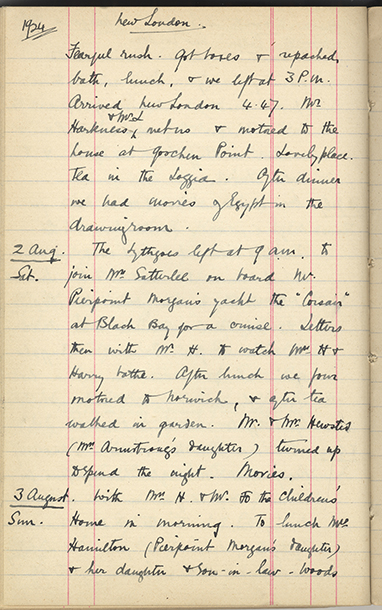 1924 New London.
Fearful rush. Got boxes & repacked,
bath, lunch, & we left at 3 P.M.
Arrived New London 4.47. Mr
& Mrs
Harkness, met us & motored to the
house at Goschen Point. Lovely place.
Tea in the Loggia. After dinner
we had movies of Egypt in the
drawing room.
2 Aug. The Lythgoes left at 9 am. to
Sat. join Mrs Satterlee on board Mr.
Pierpoint Morgan's yacht the "Corsair"
at Black Bay for a cruise. Letters
then with Mr. H. to watch Mrs H &
Harry bathe. After lunch we four
motored to Norwich, & after tea
walked in garden. Mr. & Mrs
(Mrs Armstrong's daughter) turned up
to spend the night. Movies.
3 August. With Mrs H. & Mr. to the Children's
Sun. Home in morning. To lunch Mrs
Hamilton (Pierpoint Morgan's daughter)
& her daughter & Son-in-law - Woods